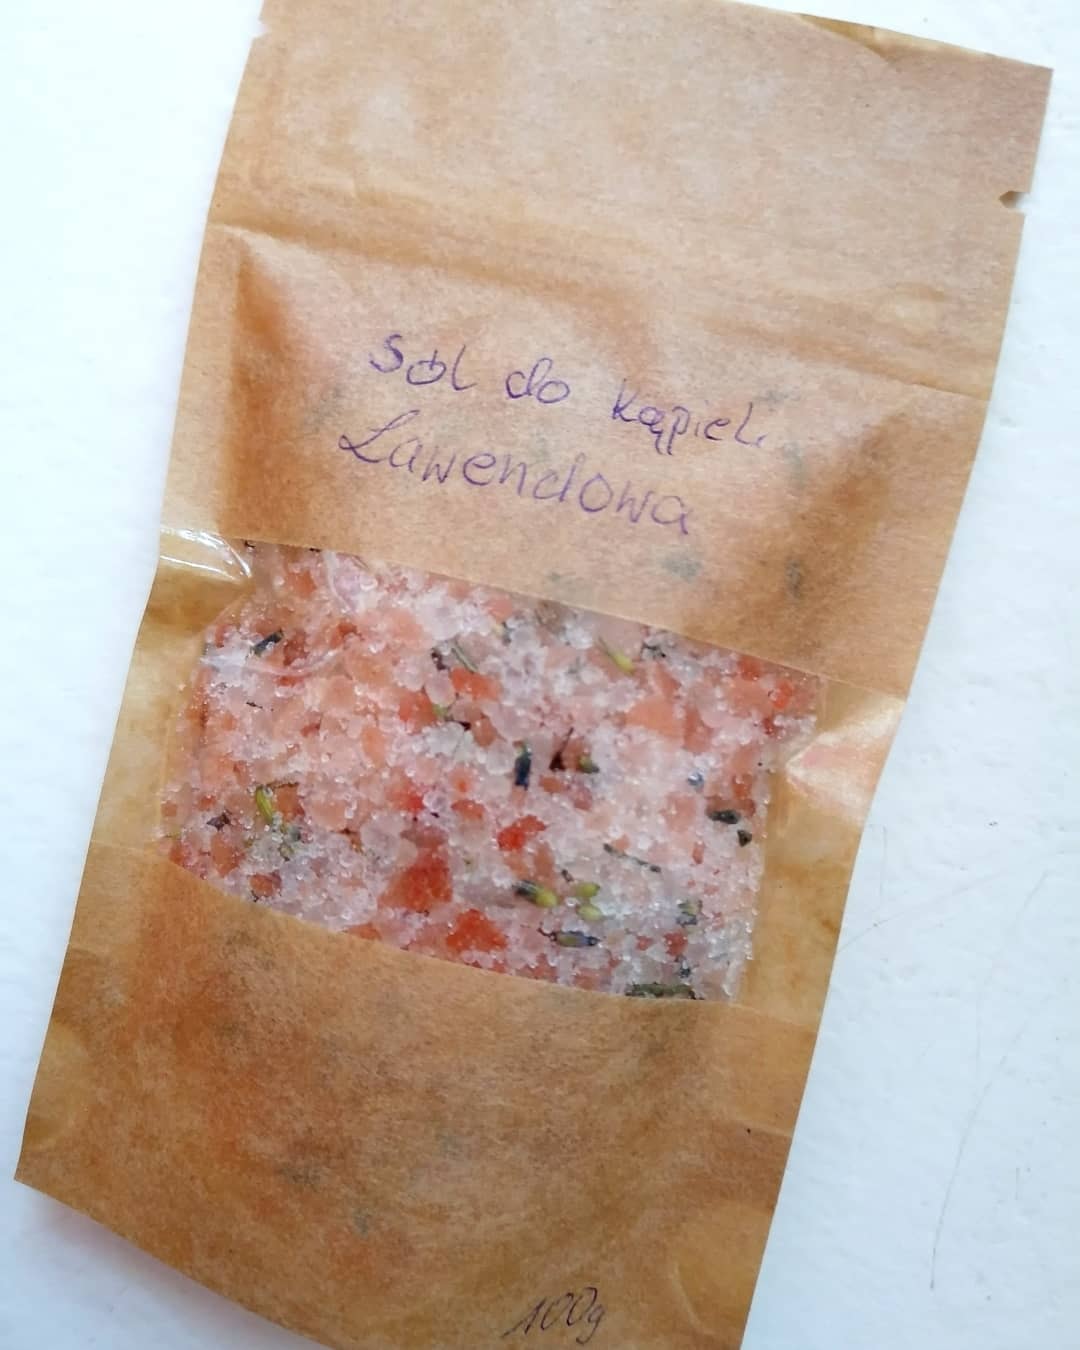 Sól do kąpieli
Lawendowa
100g